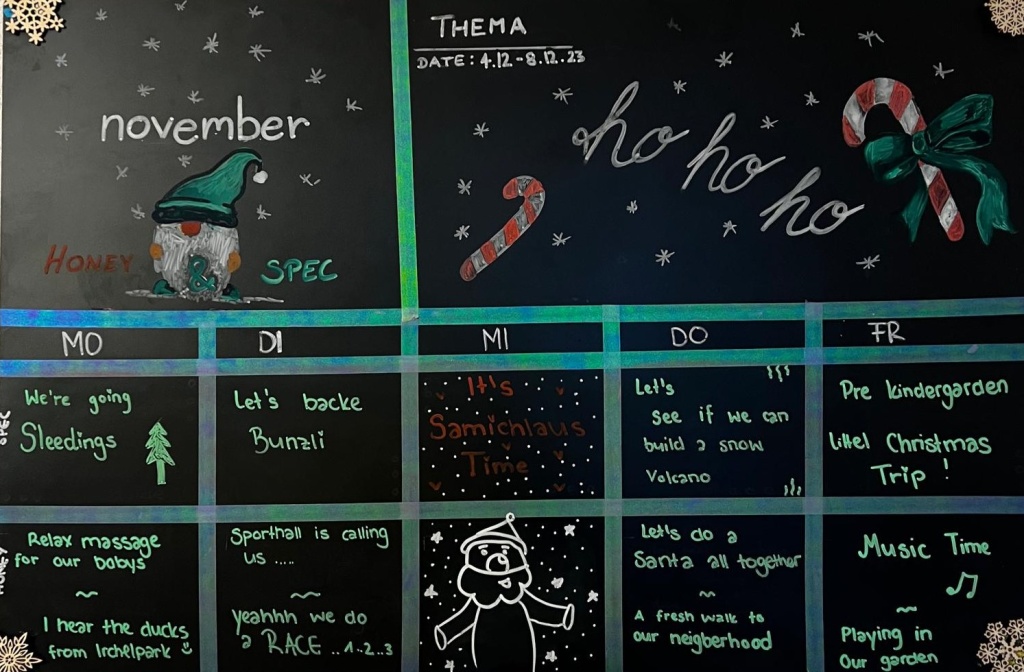 november
HONEY & SPEC
THEMA
DATE: 4.12-8.12.23
ho ho ho
MO
DI
MI
DO
FR
SPEC
We're going
Sleedings
Let's backe
Bunzli
It's
Samichlaus
Time
Let's
see if we can
build a snow
Volcano
Pre kindergarden
littel Christmas
Trip!
HONEY
Relax massage
for our babys
~
I hear the ducks
from Irchelpark
Sporthall is calling
us .....
~
yeahhh we do
a RACE ..1..2..3
Let's do a
Santa all together
~
A fresh walk to
our neigberhood
Music Time
~
Playing in
Our garden